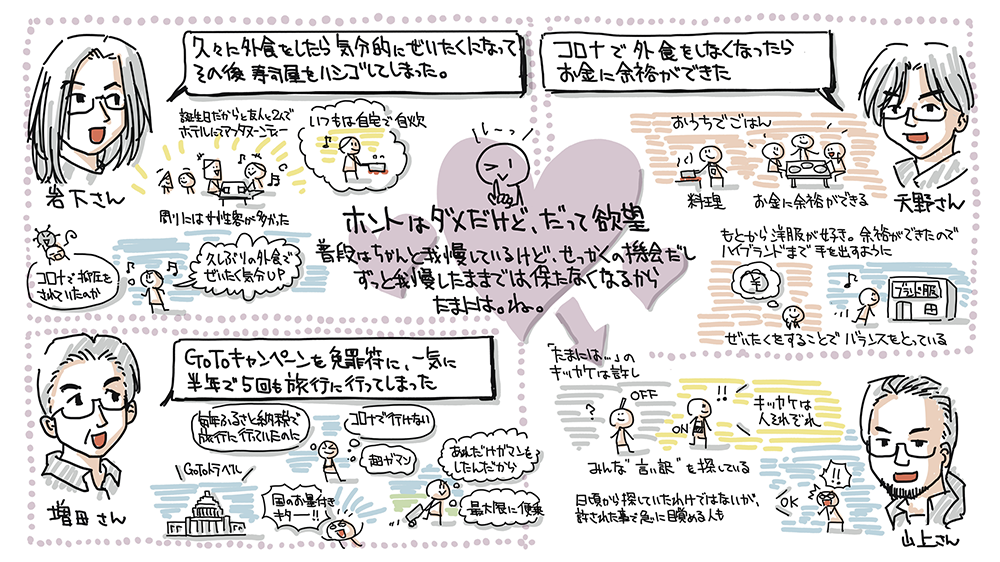 久々に外食をしたら気分的にぜいたくになって
その後 寿司屋をハシゴしてしまった。
誕生日だからと友人と2人で
ホテルにてアフタヌーンティー
いつもは自宅で自炊
岩下さん
周りには女性客が多かった
コロナで抑圧を
されていたのか
久しぶりの外食で
ぜいたく気分UP
コロナで外食をしなくなったら
お金に余裕ができた
おうちでごはん
料理
お金に余裕ができる
天野さん
もとから洋服が好き。余裕ができたので
ハイブランドまで手を出すように
¥
ブランド服
ぜいたくをすることでバランスをとっている
い〜っ
ホントはダメだけど、だって欲望
普段はちゃんと我慢しているけど、せっかくの機会だし
ずっと我慢したままでは保たなくなるから
たまには。ね。
GoToキャンペーンを免罪符に、一気に
半年で5回も旅行に行ってしまった
毎年ふるさと納税で
旅行に行っていたのに
コロナで行けない
超ガマン
GoToトラベル
国のお墨付き
キター!!
あれだけガマンも
したんだから
最大限に便乗
増田さん
「たまには…」の
キッカケは許し
?
OFF
!!
ON
キッカケは
人それぞれ
みんな"言い訳"を探している
日頃から探していたわけではないが、
許された事で急に目覚める人も
!!
OK
山上さん